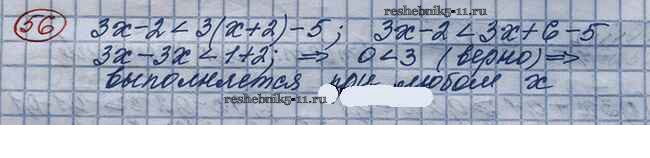 reshebnik5-11.ru
56 3x-2<3(x+2)-5; 3x-2<3x+6-5
3x-3x<1+2; ⇒ 0<3 (верно)⇒
выполняется при любом x
reshebnik5-11.ru